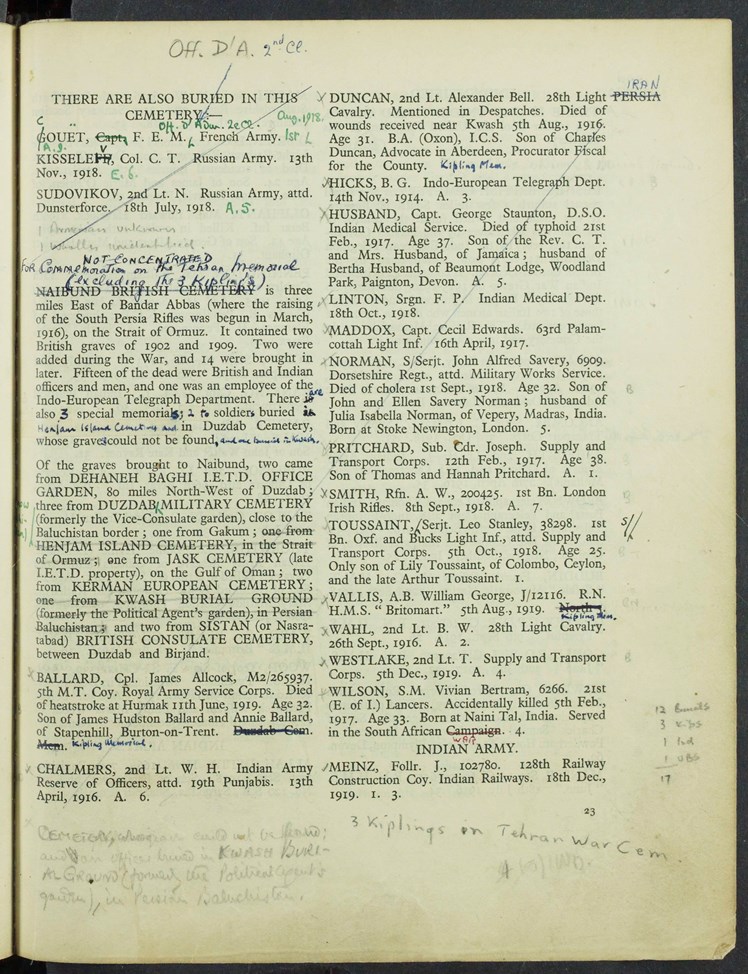 Off. D'A. 2nd Cl.
THERE ARE ALSO BURIED IN THIS
CEMETERY:—
Off. d'Adm. 2e Cl. Aug. 1918.
GOUËT, Capt. F. E. M. French Army. 1st
A. 9.
KISSELEFF, Col. C. T. Russian Army. 13th
Nov., 1918. E. 6.
SUDOVIKOV, 2nd Lt. N. Russian Army, attd.
Dunsterforce. 18th July, 1918. A. 5.
1 unknown
1 unidentified.
NOT CONCENTRATED
For Commemoration on the Tehran Memorial
(excluding the 3 Kipling's)
NAIBUND BRITISH CEMETERY is three
miles East of Bandar Abbas (where the raising
of the South Persia Rifles was begun in March,
1916), on the Strait of Ormuz. It contained two
British graves of 1902 and 1909. Two were
added during the War, and 14 were brought in
later. Fifteen of the dead were British and Indian
officers and men, and one was an employee of the
Indo-European Telegraph Department. There is are
also 3 special memorials; 2 to soldiers buried in
Henjam Island Cemetery and in Duzdab Cemetery,
whose graves could not be found, and one buried in Kwash.
Of the graves brought to Naibund, two came
from DEHANEH BAGHI I.E.T.D. OFFICE
GARDEN, 80 miles North-West of Duzdab;
three from DUZDAB MILITARY CEMETERY
(formerly the Vice-Consulate garden), close to the
Baluchistan border; one from Gakum; one from
HENJAM ISLAND CEMETERY, in the Strait
of Ormuz; one from JASK CEMETERY (late
I.E.T.D. property), on the Gulf of Oman; two
from KERMAN EUROPEAN CEMETERY;
one from KWASH BURIAL GROUND
(formerly the Political Agent's garden), in Persian
Baluchistan; and two from SISTAN (or Nasra-
tabad) BRITISH CONSULATE CEMETERY,
between Duzdab and Birjand.
BALLARD, Cpl. James Allcock, M2/265937.
5th M.T. Coy. Royal Army Service Corps. Died
of heatstroke at Hurmak 11th June, 1919. Age 32.
Son of James Hudston Ballard and Annie Ballard,
of Stapenhill, Burton-on-Trent. Duzdab Cem.
Mem. Kipling Memorial.
CHALMERS, 2nd Lt. W. H. Indian Army
Reserve of Officers, attd. 19th Punjabis. 13th
April, 1916. A. 6.
Cemetery, whose could not be found;
and one officer buried in KWASH BURI-
AL GROUND (formerly the Political Agent's
garden), in Persian Baluchistan.
IRAN
PERSIA
DUNCAN, 2nd Lt. Alexander Bell. 28th Light
Cavalry. Mentioned in Despatches. Died of
wounds received near Kwash 5th Aug., 1916.
Age 31. B.A. (Oxon), I.C.S. Son of Charles
Duncan, Advocate in Aberdeen, Procurator Fiscal
for the County. Kipling Mem.
HICKS, B. G. Indo-European Telegraph Dept.
14th Nov., 1914. A. 3.
HUSBAND, Capt. George Staunton, D.S.O.
Indian Medical Service. Died of typhoid 21st
Feb., 1917. Age 37. Son of the Rev. C. T.
and Mrs. Husband, of Jamaica; husband of
Bertha Husband, of Beaumont Lodge, Woodland
Park, Paignton, Devon. A. 5.
LINTON, Srgn. F. P. Indian Medical Dept.
18th Oct., 1918.
MADDOX, Capt. Cecil Edwards. 63rd Palam-
cottah Light Inf. 16th April, 1917.
NORMAN, S/Serjt. John Alfred Savery, 6909.
Dorsetshire Regt., attd. Military Works Service.
Died of cholera 1st Sept., 1918. Age 32. Son of
John and Ellen Savery Norman; husband of
Julia Isabella Norman, of Vepery, Madras, India.
Born at Stoke Newington, London. 5.
PRITCHARD, Sub. Cdr. Joseph. Supply and
Transport Corps. 12th Feb., 1917. Age 38.
Son of Thomas and Hannah Pritchard. A. 1.
SMITH, Rfn. A. W., 200425. 1st Bn. London
Irish Rifles. 8th Sept., 1918. A. 7.
TOUSSAINT, Serjt. Leo Stanley, 38298. 1st
Bn. Oxf. and Bucks Light Inf., attd. Supply and
Transport Corps. 5th Oct., 1918. Age 25.
Only son of Lily Toussaint, of Colombo, Ceylon,
and the late Arthur Toussaint. 1.
VALLIS, A.B. William George, J/12116. R.N.
H.M.S. "Britomart." 5th Aug., 1919. North 4.
Kipling Mem.
WAHL, 2nd Lt. B. W. 28th Light Cavalry.
26th Sept., 1916. A. 2.
WESTLAKE, 2nd Lt. T. Supply and Transport
Corps. 5th Dec., 1919. A. 4.
WILSON, S.M. Vivian Bertram, 6266. 21st
(E. of I.) Lancers. Accidentally killed 5th Feb.,
1917. Age 33. Born at Naini Tal, India. Served
in the South African Campaign. 4.
WAR
INDIAN ARMY.
MEINZ, Follr. J., 102780. 128th Railway
Construction Coy. Indian Railways. 18th Dec.,
1919. 1. 3.
12 Burials
3 Kips
1 Ind
1 UBS
17
23
3 Kiplings in Tehran War Cem.